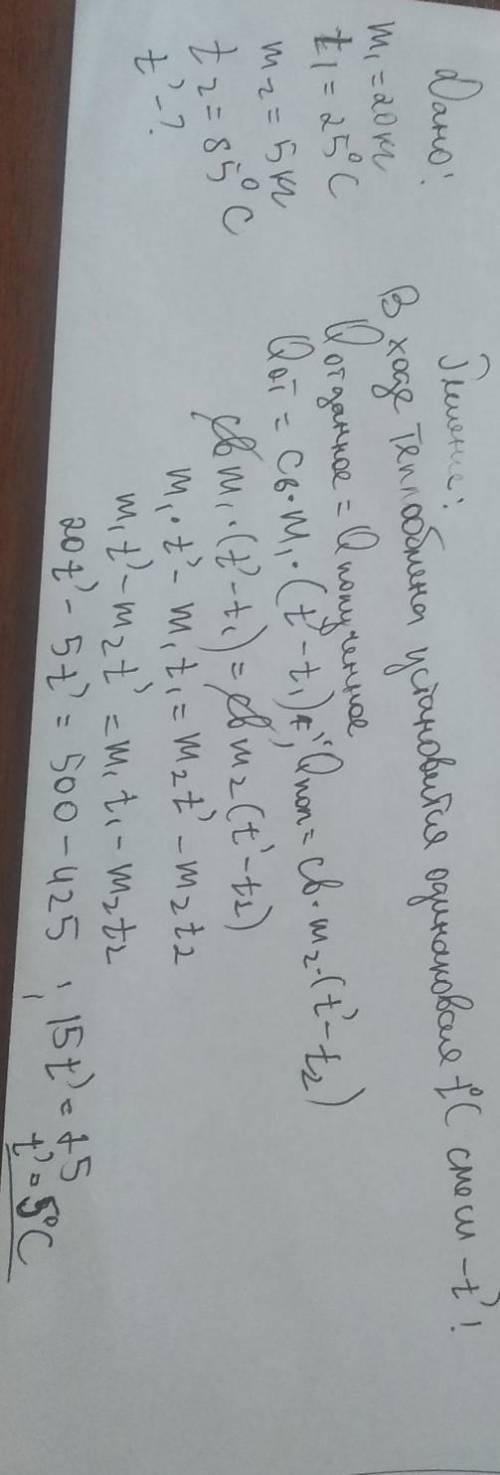 Дано:
m₁ = 20 кг
t₁ = 25°C
m₂ = 5 кг
t₂ = 85°C
t' - ?
Решение:
В ходе теплообмена установится одинаковая t°C смеси - t'!
Qотданное = Qполученное
Qот = cв·m₁·(t' - t₁); Qпол = cв·m₂·(t' - t₂)
cв m₁·(t' - t₁) = cв m₂(t' - t₂)
m₁·t' - m₁t₁ = m₂t' - m₂t₂
m₁t' - m₂t' = m₁t₁ - m₂t₂
20t' - 5t' = 500 - 425 ; 15t' = 75
t' = 5°C